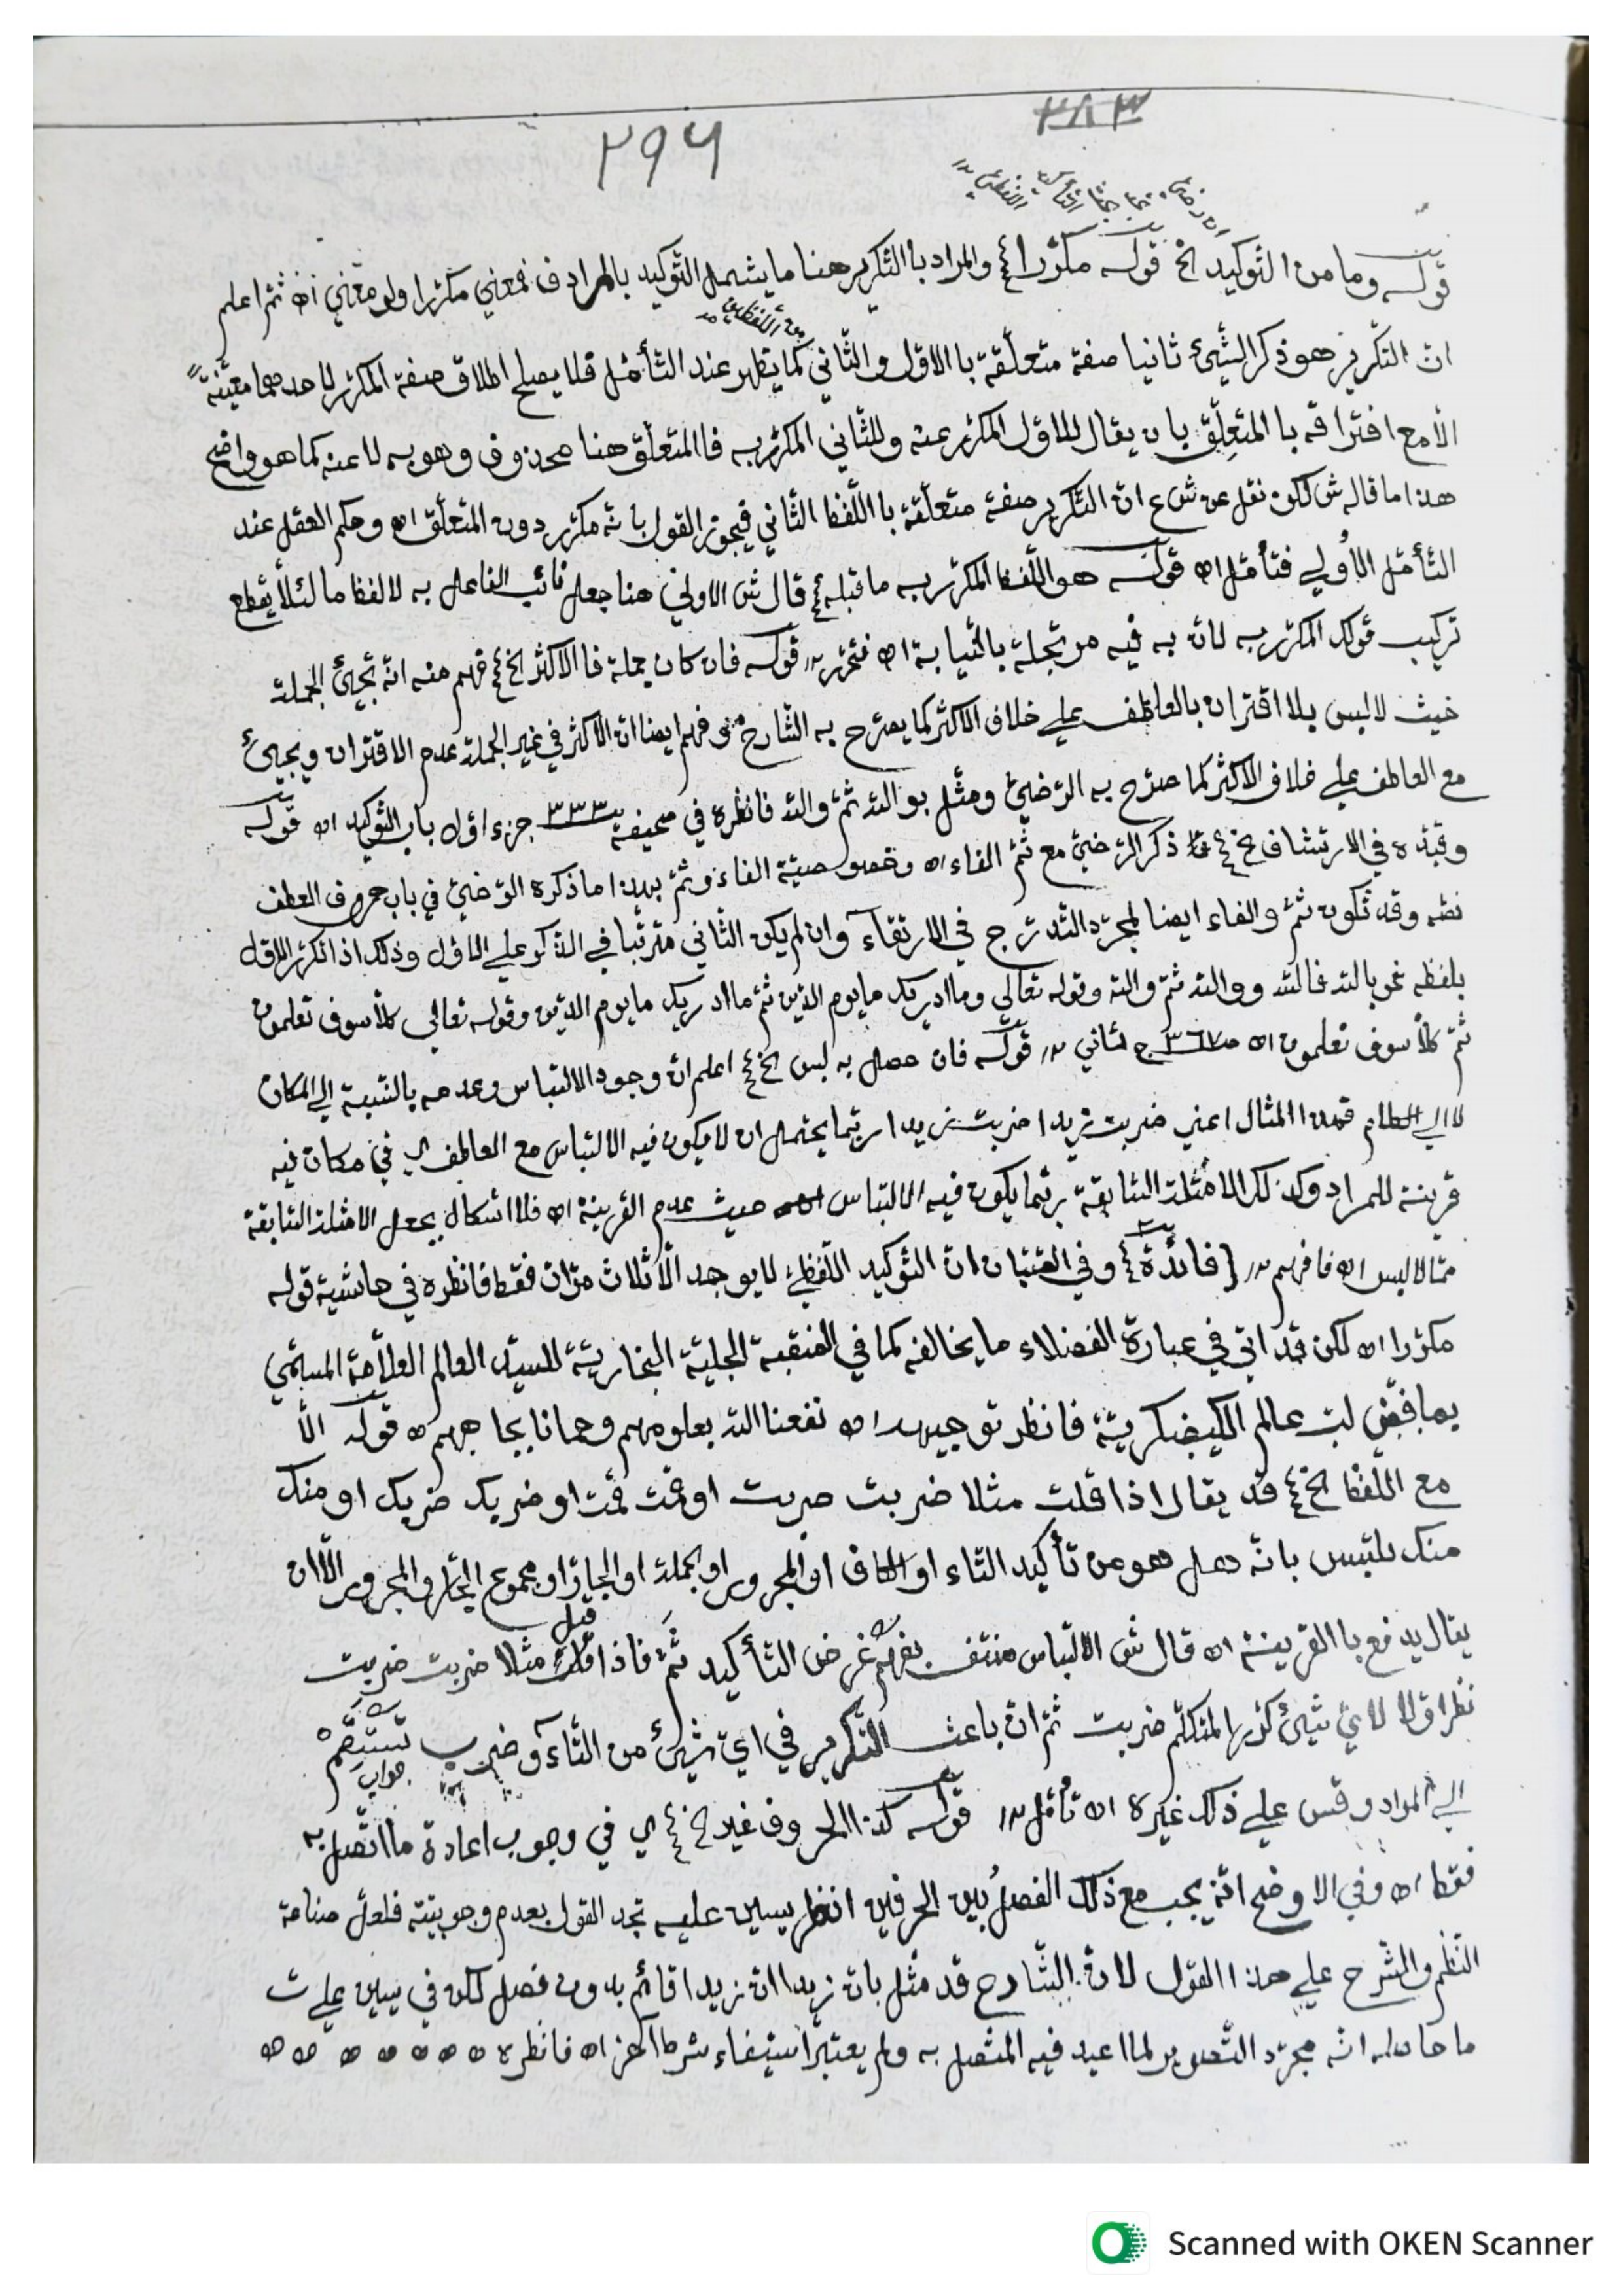 ٣٨٣
٢٩٦
قوله وما من التوكيد الخ قوله مكرّرا ع والمراد باالتّكرير هنا ما يشمل التّوكيد بالمرادف فمعني مكرّرا ولو معني اه ثمّ اعلم
انّ التّكرير هو ذكر الشّيئ ثانيا صفة متعلّقة باالاوّل والثّاني كما يظهر عند التّأمّل فلا يصلح اطلاق صفة المكرّر لاحدهما معيّنة
الّا مع افتراقه باالمتعلّق بان يقال للاوّل المكرّر عنه وللثّاني المكرّر به فاالمتعلّق هنا محذوف وهو به لا عنه كما هو واضح
هذا ما قاله ش لكن نقل عن ش ع انّ التّكرير صفة متعلّقة باالّلفظ الثّاني فيجوز القول بانّه مكرّر دون المتعلّق اه وحكم العقل عند
التّأمّل الاولي فتأمّل اه قوله هو الّلفظ المكرّر به ما قبله ع قال ش الاولي هنا جعل نائب الفاعل به لا لفظ ما لئلّا يقطع
تركيب قولك المكرّر به لانّ به فيه مرتجلة بالنّيابة اه فتحرّر قوله فان كان جملة فاالاكثر الخ ع فهم منه انّه تجيئ الجملة
حيث لا لبس بلا اقتران بالعاطف علي خلاف الاكثر كما يصرّح به الشّارح وفهم ايضا انّ الاكثر في غير الجملة عدم الاقتران ويجيئ
مع العاطف علي خلاف الاكثر كما صرّح به الرّضيّ ومثّل بو الله ثمّ والله فانظره في صحيفة ٣٣٣ جزء اوّل باب التّوكيد اه قوله
وقيّده في الارتشاف الخ ع ذكر الرّضيّ مع ثمّ الفاء اه وخصوصيّة الفاء وثمّ بهذا ما ذكره الرّضيّ في باب حروف العطف
نصّه وقد تكون ثمّ والفاء ايضا لمجرّد التّدرّج في الارتقاء وان لم يكن الثّاني مترتّبا في الذّكر علي الاوّل وذلك اذا تكرّر الاوّل
بلفظه نحو بالله فالله ووالله ثمّ والله وقوله تعالي وما ادريك ما يوم الدّين ثمّ ما ادريك ما يوم الدّين وقوله تعالي كلّا سوف تعلمون
ثمّ كلّا سوف تعلمون اه ص ٣٦٧ ج ثاني قوله فان حصل به لبس الخ ع اعلم انّ وجود الالتباس وعدمه بالنّسبة الي المكان
لا الي الكلام فهذا المثال اعني ضربت زيدا ضربت زيدا ربّما يحتمل ان لا يكون فيه الالتباس مع العاطف اي في مكان فيه
قرينة للمراد وكذلك الامثلة السّابقة ربّما يكون فيه الالتباس حيث عدم القرينة اه فلا اشكال بجعل الامثلة السّابقة
ممّا لا لبس اه فافهم {فائدة} وفي الصّبّان انّ التّوكيد الّلفظيّ لا يوجد الّا ثلاث مرّات فقط فانظره في حاشية قوله
مكرّرا اه لكن قد اتي في عبارة الفضلاء ما يخالفه كما في المنقبة الجليّة البخاريّة للسيّد العالم العلّامة المسمّي
فانظر توجيهه اه نفعنا الله بعلومهم وحمانا بجاههم ه قوله الّا
مع الّلفظ الخ ع قد يقال اذا قلت مثلا ضربت ضربت او قمت قمت او ضربك ضربك او منك
منك يلتبس بانّه هل هو من تأكيد التّاء او الكاف او المجرور او الجملة او الجارّ او مجموع الجارّ والمجرور الّا ان
يقال يدفع باالقرينة اه قال ش الالتباس منتف بفهم غرض التّأكيد ثمّ فاذا قيل مثلا ضربت ضربت
نظر اوّلا لايّ شيئ كرّرها المتكلّم ضربت ثمّ انّ باعث التّكرير في ايّ شيئ من التّاء وضرب
الي المراد وقس علي ذلك غيره اه تأمّل قوله كذا الحروف غير الخ ع اي في وجوب اعادة ما اتّصل به
فقط اه وفي الاوضح انّه يجب مع ذلك الفصل بين الحرفين انظر يسين عليه تجد القول بعدم وجوبيّته فلعلّ
النّظم والشّرح علي هذا القول لانّ الشّارح قد مثّل بانّ زيدا انّ زيدا قائم بدون فصل لكن في يسين علي ش
ما حاصله انّه مجرّد التّصوير لما اعيد فيه المتّصل به ولم يعتبر استيفاء شرط اه فانظره ه ه ه ه ه ه ه
Scanned with OKEN Scanner